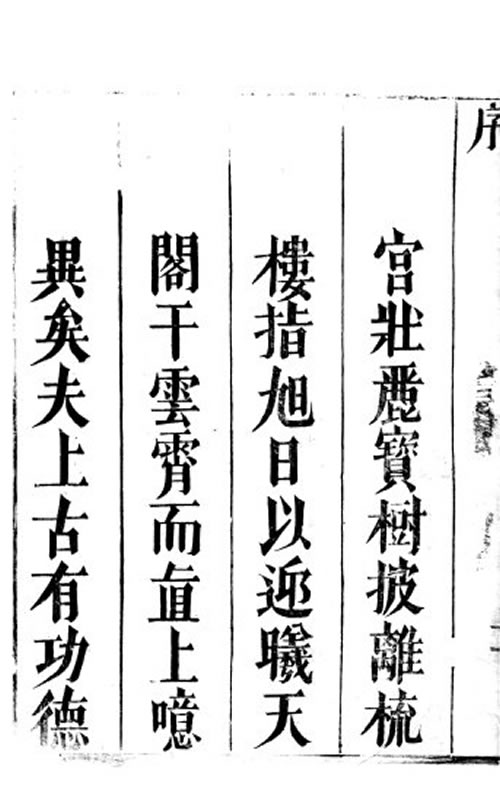 序
宫壯麗寳樹披離梳
樓指旭日以迎曦天
閣干雲霄而直上噫
異矣夫上古有功德